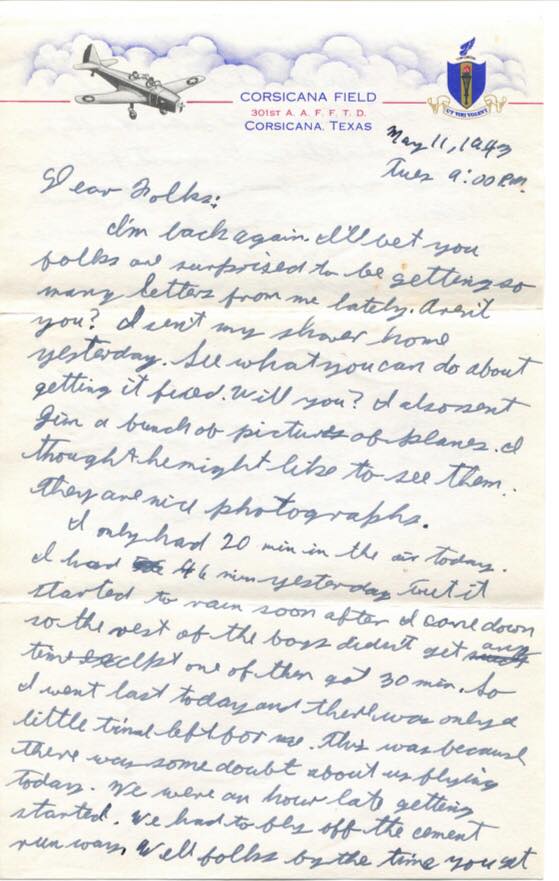 CORSICANA FIELD
301ST A. A. F. F. T. D.
CORSICANA, TEXAS
UT VIRI VOLENT
May 11, 1943
Tues 9:00 P.M.
Dear Folks:
I'm back again. I'll bet you
folks are surprised to be getting so
many letters from me lately. Aren't
you? I sent my shaver home
yesterday. See what you can do about
getting it fixed. Will you? I also sent
Jim a bunch of pictures of planes. I
thought he might like to see them.
They are nice photographs.
I only had 20 min in the air today.
I had 46 min yesterday but it
started to rain soon after I came down
so the rest of the boys didn't get any
time except one of them got 30 min. So
I went last today and there was only a
little time left for me. This was because
there was some doubt about us flying
today. We were an hour late getting
started. We had to fly off the cement
runway. Well folks by the time you get